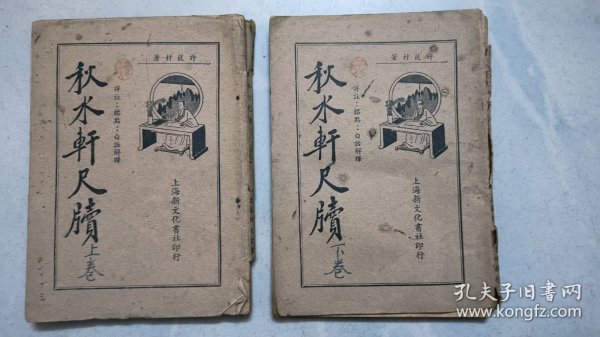 許葭村著
秋水軒尺牘
上卷
詳註·標點·白話解釋
上海新文化書社印行
許葭村著
秋水軒尺牘
下卷
詳註·標點·白話解釋
上海新文化書社印行
孔夫子旧书网
www.kongfz.com